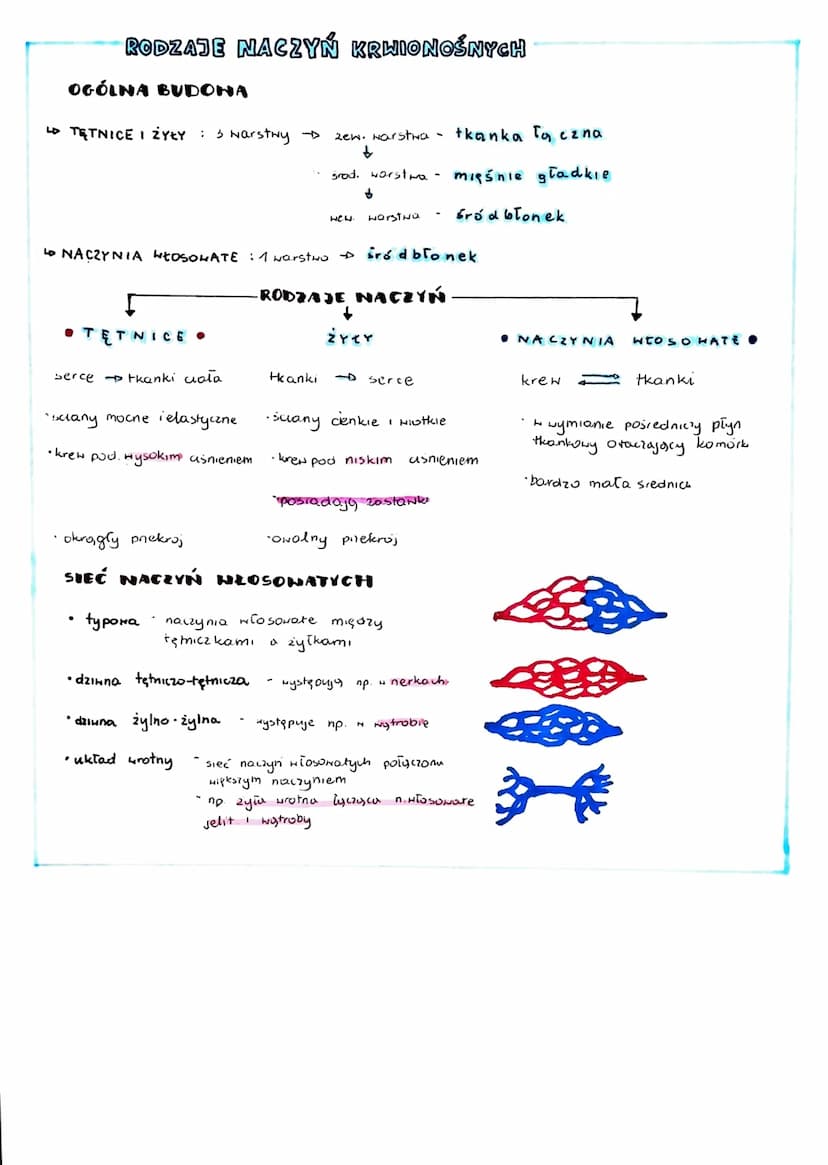 RODZAJE NACZYŃ KRWIONOŚNYCH
OGÓLNA BUDOWA
↳ TĘTNICE I ŻYŁY : 3 warstwy → zew. warstwa - tkanka łączna
↓
środ. warstwa - mięśnie gładkie
↓
wew. warstwa - śródbłonek
↳ NACZYNIA WŁOSOWATE : 1 warstwa → śródbłonek
RODZAJE NACZYŃ
• TĘTNICE •
serce → tkanki ciała
· ściany mocne i elastyczne
· krew pod. wysokim ciśnieniem
· okrągły przekrój
ŻYŁY
tkanki → serce
· ściany cienkie i wiotkie
· krew pod niskim ciśnieniem
· posiadają zastawki
· owalny przekrój
• NACZYNIA WŁOSOWATE •
krew ⇌ tkanki
· w wymianie pośredniczy płyn
tkankowy otaczający komórki
· bardzo mała średnica
SIEĆ NACZYŃ WŁOSOWATYCH
• typowa - naczynia włosowate między
tętniczkami a żyłkami
• dziwna tętniczo-tętnicza - występują np. w nerkach
• dziwna żylno-żylna - występuje np. w wątrobie
• układ wrotny - sieć naczyń włosowatych połączona
większym naczyniem
- np. żyła wrotna łącząca n. włosowate
jelit i wątroby